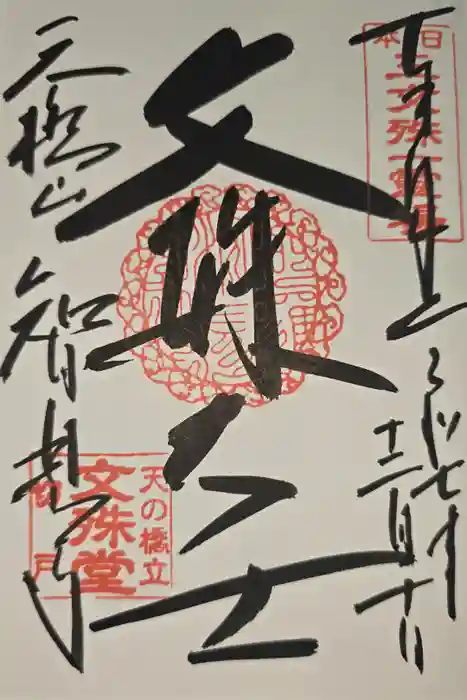 日本
三文殊一霊場
令和七年
十二月十日
文殊大士
天橋山
智恩寺
天の橋立
文殊堂
切戸